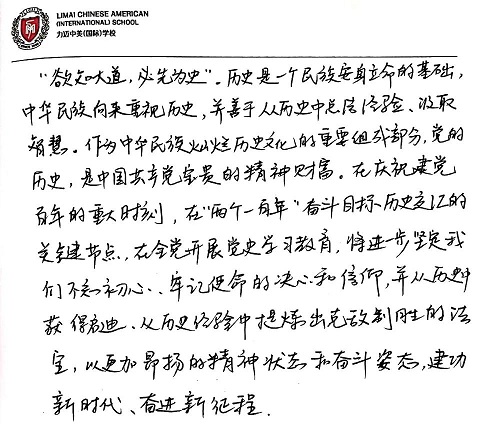 LIMAI CHINESE AMERICAN
(INTERNATIONAL) SCHOOL
力迈中美(国际)学校
“欲知大道，必先为史”。历史是一个民族安身立命的基础，
中华民族向来重视历史，并善于从历史中总结经验、汲取
智慧。作为中华民族灿烂历史文化的重要组成部分，党的
历史，是中国共产党宝贵的精神财富。在庆祝建党
百年的重大时刻，在“两个一百年”奋斗目标历史交汇的
关键节点，在全党开展党史学习教育，将进一步坚定我
们不忘初心、牢记使命的决心和信仰，并从历史中
获得启迪、从历史经验中提炼出克敌制胜的法
宝，以更加昂扬的精神状态和奋斗姿态，建功
新时代、奋进新征程.